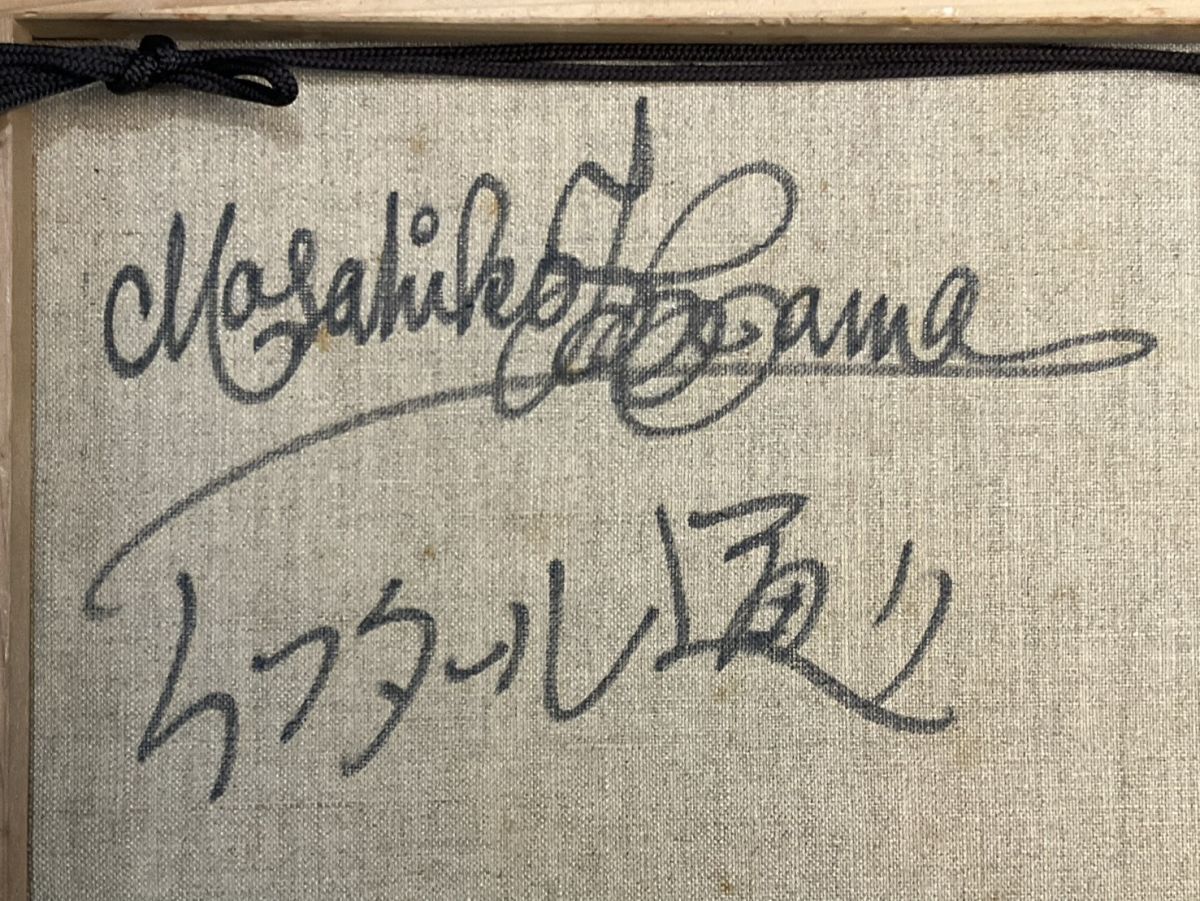 Masahiko
ムフタール通り